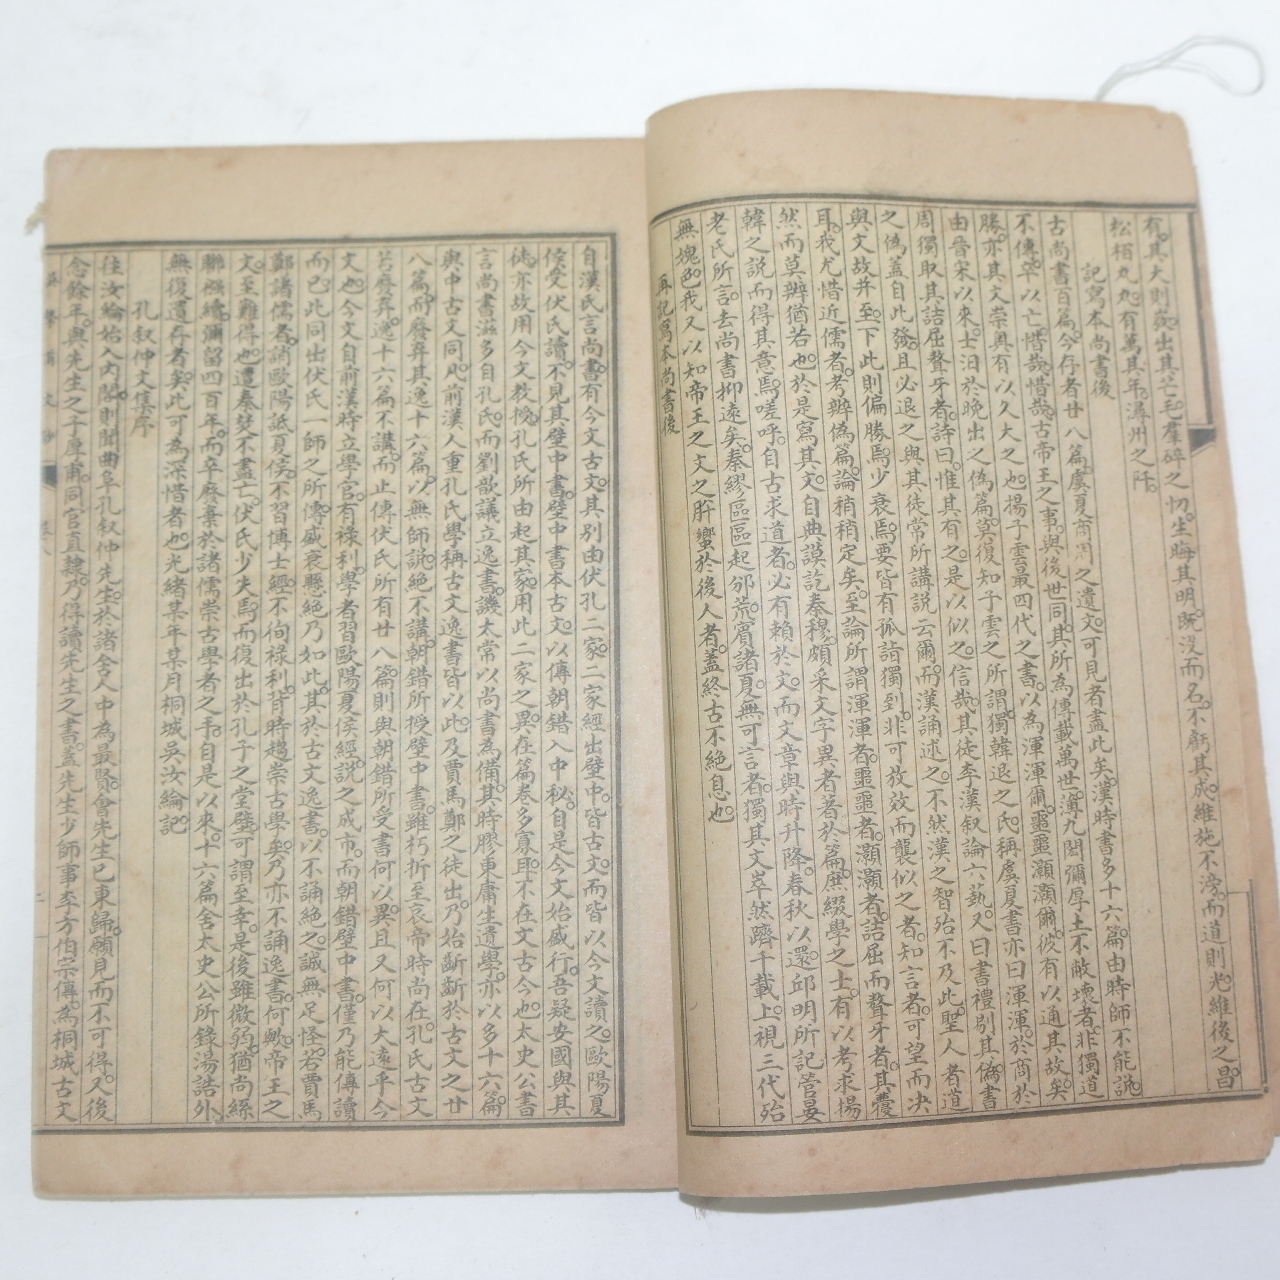 有。其大則嶽。出其芒毛。羣碎之切。生晦其明。旣沒而名。不虧其成。維施不滂。而道則光。維後之昌。
松栢丸丸。有萬其年。濤州之阡。
記寫本尚書後
古尚書百篇。今存者廿八篇。虞夏商周之遺文。可見者盡此矣。漢時書多十六篇。由時師不能說。
不傳。卒以亡。惜哉惜哉。古帝王之事。與後世同。其所為傳載萬世。薄九閎彌厚土不敝壞者。非獨道
勝。亦其文崇奧有以久大之也。揚子雲最四代之書。以為渾渾爾。噩噩灝灝爾。彼有以通其故矣。
由晉宋以來。士汩於晚出之偽篇。莫復知子雲之所謂。獨韓退之氏。稱虞夏書亦曰渾渾。於商於
周獨取其詰屈聱牙者。詩曰。惟其有之。是以似之。信哉。其徒李漢叙論六蓺。又曰書禮剔其偽。書
之偽蓋自此發。且必退之與其徒常所講說云爾。而漢誦述之。不然漢之智殆不及此。聖人者道
與文故并至。下此則偏勝焉。少衰焉。要皆有孤詣獨到。非可放效而襲似之者。知言者。可望而決
耳。我尤惜近儒者。考辨偽篇。論稍稍定矣。至論所謂渾渾者。噩噩者。灝灝者。詰屈而聱牙者。其薆
然而莫辨猶若也。於是寫其文。自典謨訖秦穆。頗采文字異者著於篇。庶綴學之士。有以考求揚
韓之說而得其意焉。嗟呼。自古求道者。必有賴於文。而文章與時升降。春秋以還。邱明所記管晏
老氏所言。去尚書抑遠矣。秦繆區區起邠荒。賓諸夏。無可言者。獨其文崒然躋千載上。視三代殆
無媿色。我又以知帝王之文之肸蠁於後人者。蓋終古不絕息也。
再記寫本尚書後
自漢氏言尚書。有今文古文。其別由伏孔二家。二家經出壁中。皆古文。而皆以今文讀之。歐陽夏
侯受伏氏讀。不見其壁中書。壁中書本古文。以傳朝錯入中秘。自是今文始盛行。吾疑安國與其
徒。亦故用今文教授。孔氏所由起其家。用此二家之異。在篇卷多寡。且不在文古今也。太史公書
言尚書滋多自孔氏。而劉歆議立逸書。譏太常以尚書為備。其時膠東庸生遺學。亦以多十六篇
與中古文同。凡前漢人重孔氏學稱古文逸書皆以此。及賈馬鄭之徒出。乃始斷斷於古文之廿
八篇。而廢棄其逸十六篇。以無師說。絕不講。朝錯所授壁中書。雖朽折。至哀帝時尚在。孔氏古文
若廢棄逸十六篇不講。而止傳伏氏所有廿八篇。則與朝錯所受書何以異。且又何以大遠乎今
文也。今文自前漢時立學官。有祿利。學者習歐陽夏侯經說。之成市。而朝錯壁中書。僅乃能傳讀
而已。此同出伏氏一師之所傳。盛衰懸絕乃如此。其於古文逸書。以不誦絕之。誠無足怪。若賈馬
鄭諸儒者。誚歐陽詆夏侯。不習博士經。不徇祿利。背時趨。崇古學矣。乃亦不誦逸書何歟。帝王之
文。至難得也。遭秦焚不盡亡。伏氏少失焉。而復出於孔子之堂壁。可謂至幸。是後雖微弱。猶尚緜
聯綴續。彌留四百年。而卒廢棄於諸儒崇古學者之手。自是以來。十六篇舍太史公所錄湯誥外
無復遺存者矣。此可為深惜者也。光緒某年某月桐城吳汝綸記。
孔叙仲文集序
往汝綸始入內閣。則聞曲阜孔叙仲先生。於諸舍人中為最賢。會先生已東歸。願見而不可得。又後
念餘年。與先生之子厚甫同官直隸。乃得讀先生之書。蓋先生少師事李方伯宗傳。為桐城古文